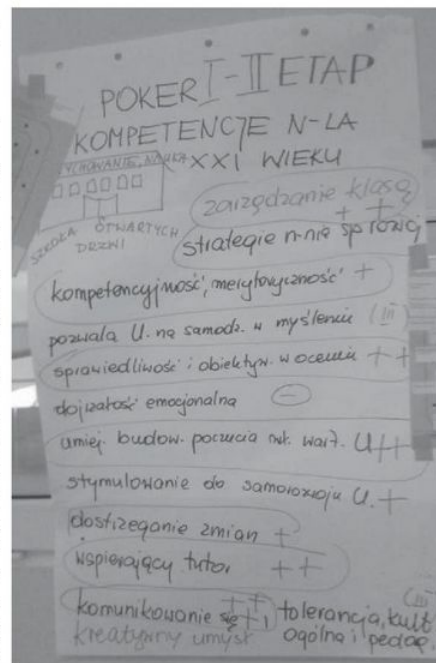 POKER I-II ETAP
KOMPETENCJE N-LA
XXI WIEKU
WYCHOWANIE, NAUKA
SZKOŁA OTWARTYCH
DRZWI
zarządzanie klasą
+ +
strategie n-nia
kompetencyjność, merytoryczność +
pozwala U. na samodz. w myśleniu (III)
sprawiedliwość i obiektyw. w ocenie + +
dojrzałość emocjonalna -
umiej. budow. poczucia wł. wart. U ++
stymulowanie do samorozwoju U. +
dostrzeganie zmian +
wspierający tutor + +
komunikowanie się + + +
tolerancja, kult.
ogólna i pedag.
(III)
kreatywny umysł